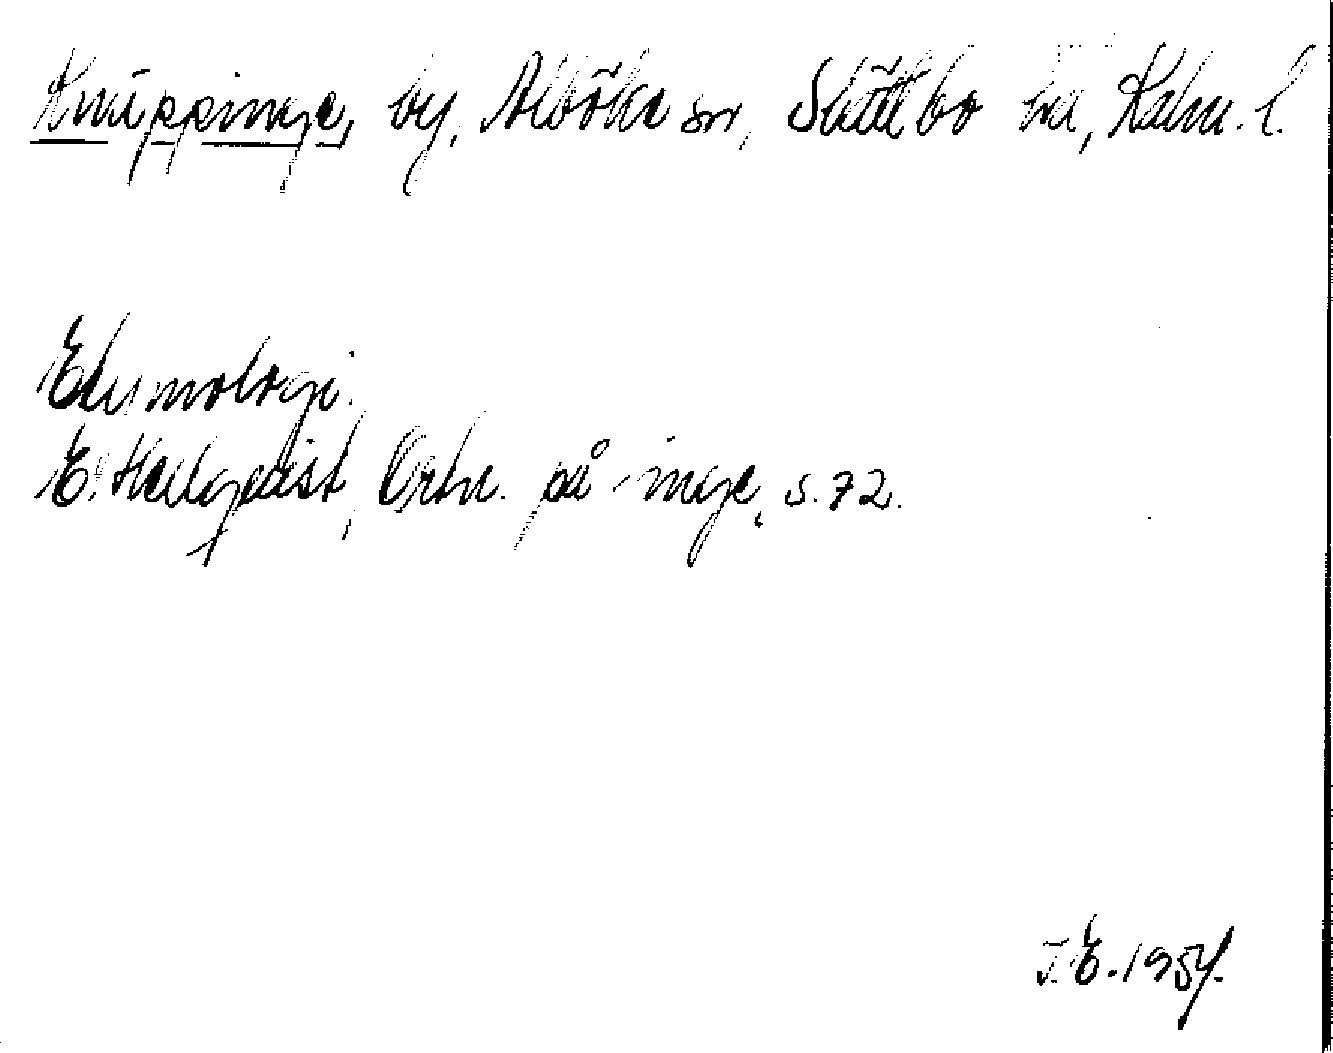 Knuppinge, by, Alböke sn, Slättbo hd, Kalm. l.
Etymologi.
E. Hellquist, Ortn. på -inge, s. 72.
I.E. 1954.